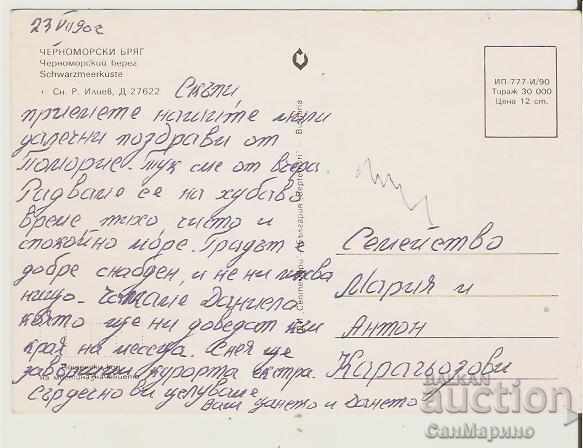 23 VII 90г
ЧЕРНОМОРСКИ БРЯГ
Черноморский берег
Schwarzmeerküste
Сн. Р. Илиев, Д 27622
Скъпи
приемете нашите мили
далечни поздрави от
Поморие. Тук сме от вчера
Радваме се на хубаво
време тихо чисто и
спокойно море. Градът е
добре снабден, и не ни липсва
нищо. Чакаме Даниела
която ще ни доведат към
края на месеца. С нея ще
завършим курорта екстра.
Сърдечно ви целуваме
Ваши
ИП-777-И/90
Тираж 30 000
Цена 12 ст.
България
Bulgaria
Семейство
Мария и
Антон
Карагьозови
BALKAN
auction
СанМарино